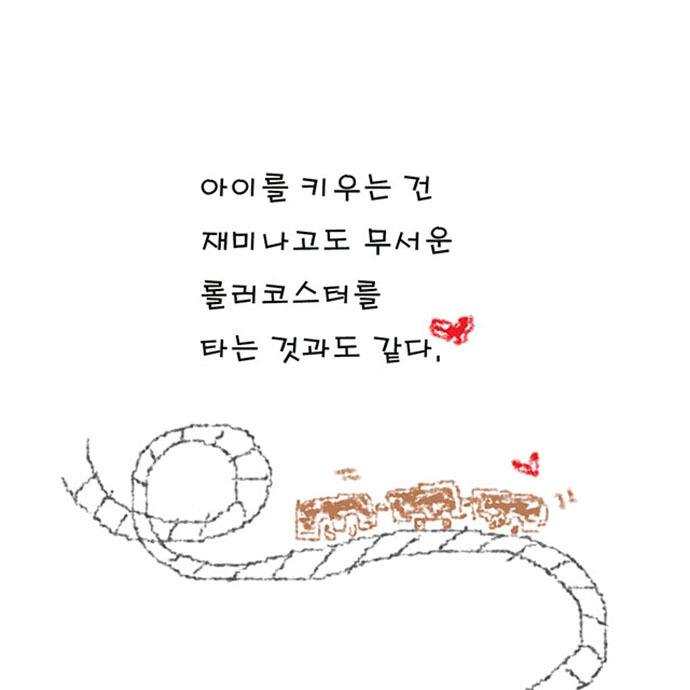 아이를 키우는 건
재미나고도 무서운
롤러코스터를
타는 것과도 같다.